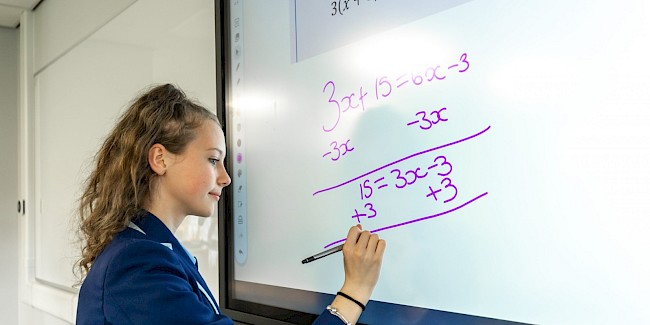 3(x
3x+15=6x-3
-3x -3x
15=3x-3
+3 +3